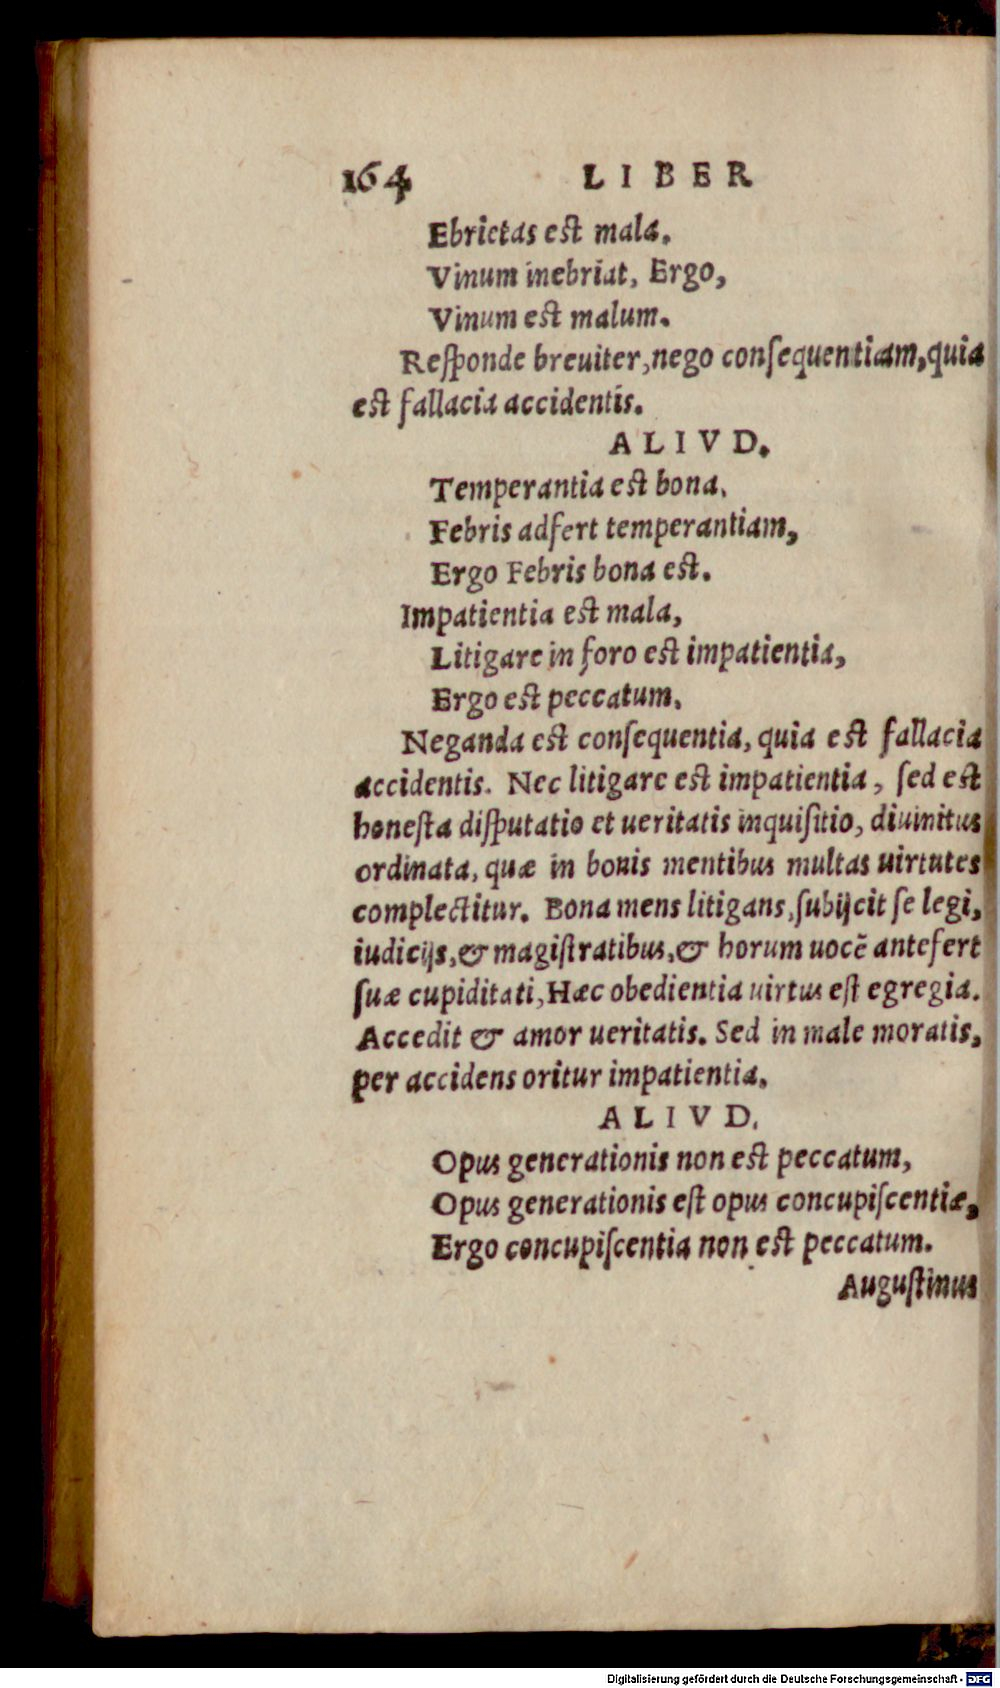 164 LIBER
Ebrietas est mala.
Vinum inebriat, Ergo,
Vinum est malum.
Responde breuiter, nego consequentiam, quia
est fallacia accidentis.
ALIVD.
Temperantia est bona.
Febris adfert temperantiam,
Ergo Febris bona est.
Impatientia est mala,
Litigare in foro est impatientia,
Ergo est peccatum.
Neganda est consequentia, quia est fallacia
accidentis. Nec litigare est impatientia, sed est
honesta disputatio et ueritatis inquisitio, diuinitus
ordinata, quæ in bonis mentibus multas uirtutes
complectitur. Bona mens litigans, subijcit se legi,
iudicijs, & magistratibus, & horum uocē antefert
suæ cupiditati, Hæc obedientia uirtus est egregia.
Accedit & amor ueritatis. Sed in male moratis,
per accidens oritur impatientia.
ALIVD.
Opus generationis non est peccatum,
Opus generationis est opus concupiscentiæ,
Ergo concupiscentia non est peccatum.
Augustinus
Digitalisierung gefördert durch die Deutsche Forschungsgemeinschaft - DFG